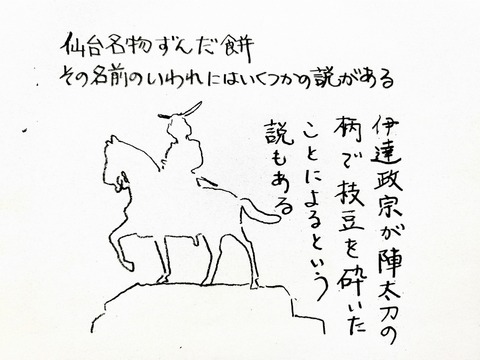 仙台名物ずんだ餅
その名前のいわれにはいくつかの説がある
伊達政宗が陣太刀の
柄で枝豆を砕いた
ことによるという
説もある